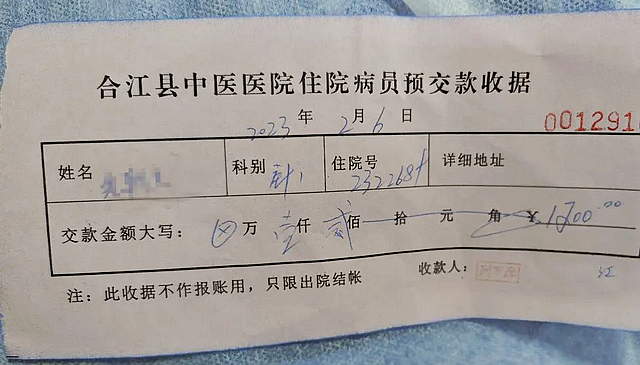 合江县中医医院住院病员预交款收据
2023年 2月 6日
001291
姓名 科别 住院号 详细地址
交款金额大写: ⊗万 壹仟 贰佰 拾 元 角 ¥1200.00
注:此收据不作报账用,只限出院结帐 收款人: